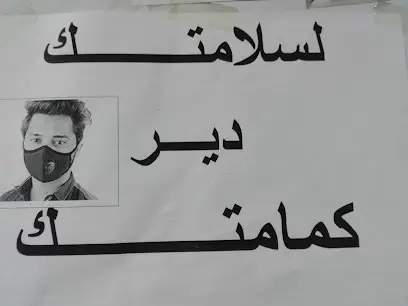 لسلامتـــــك
ديـــر
كمامتـــــك